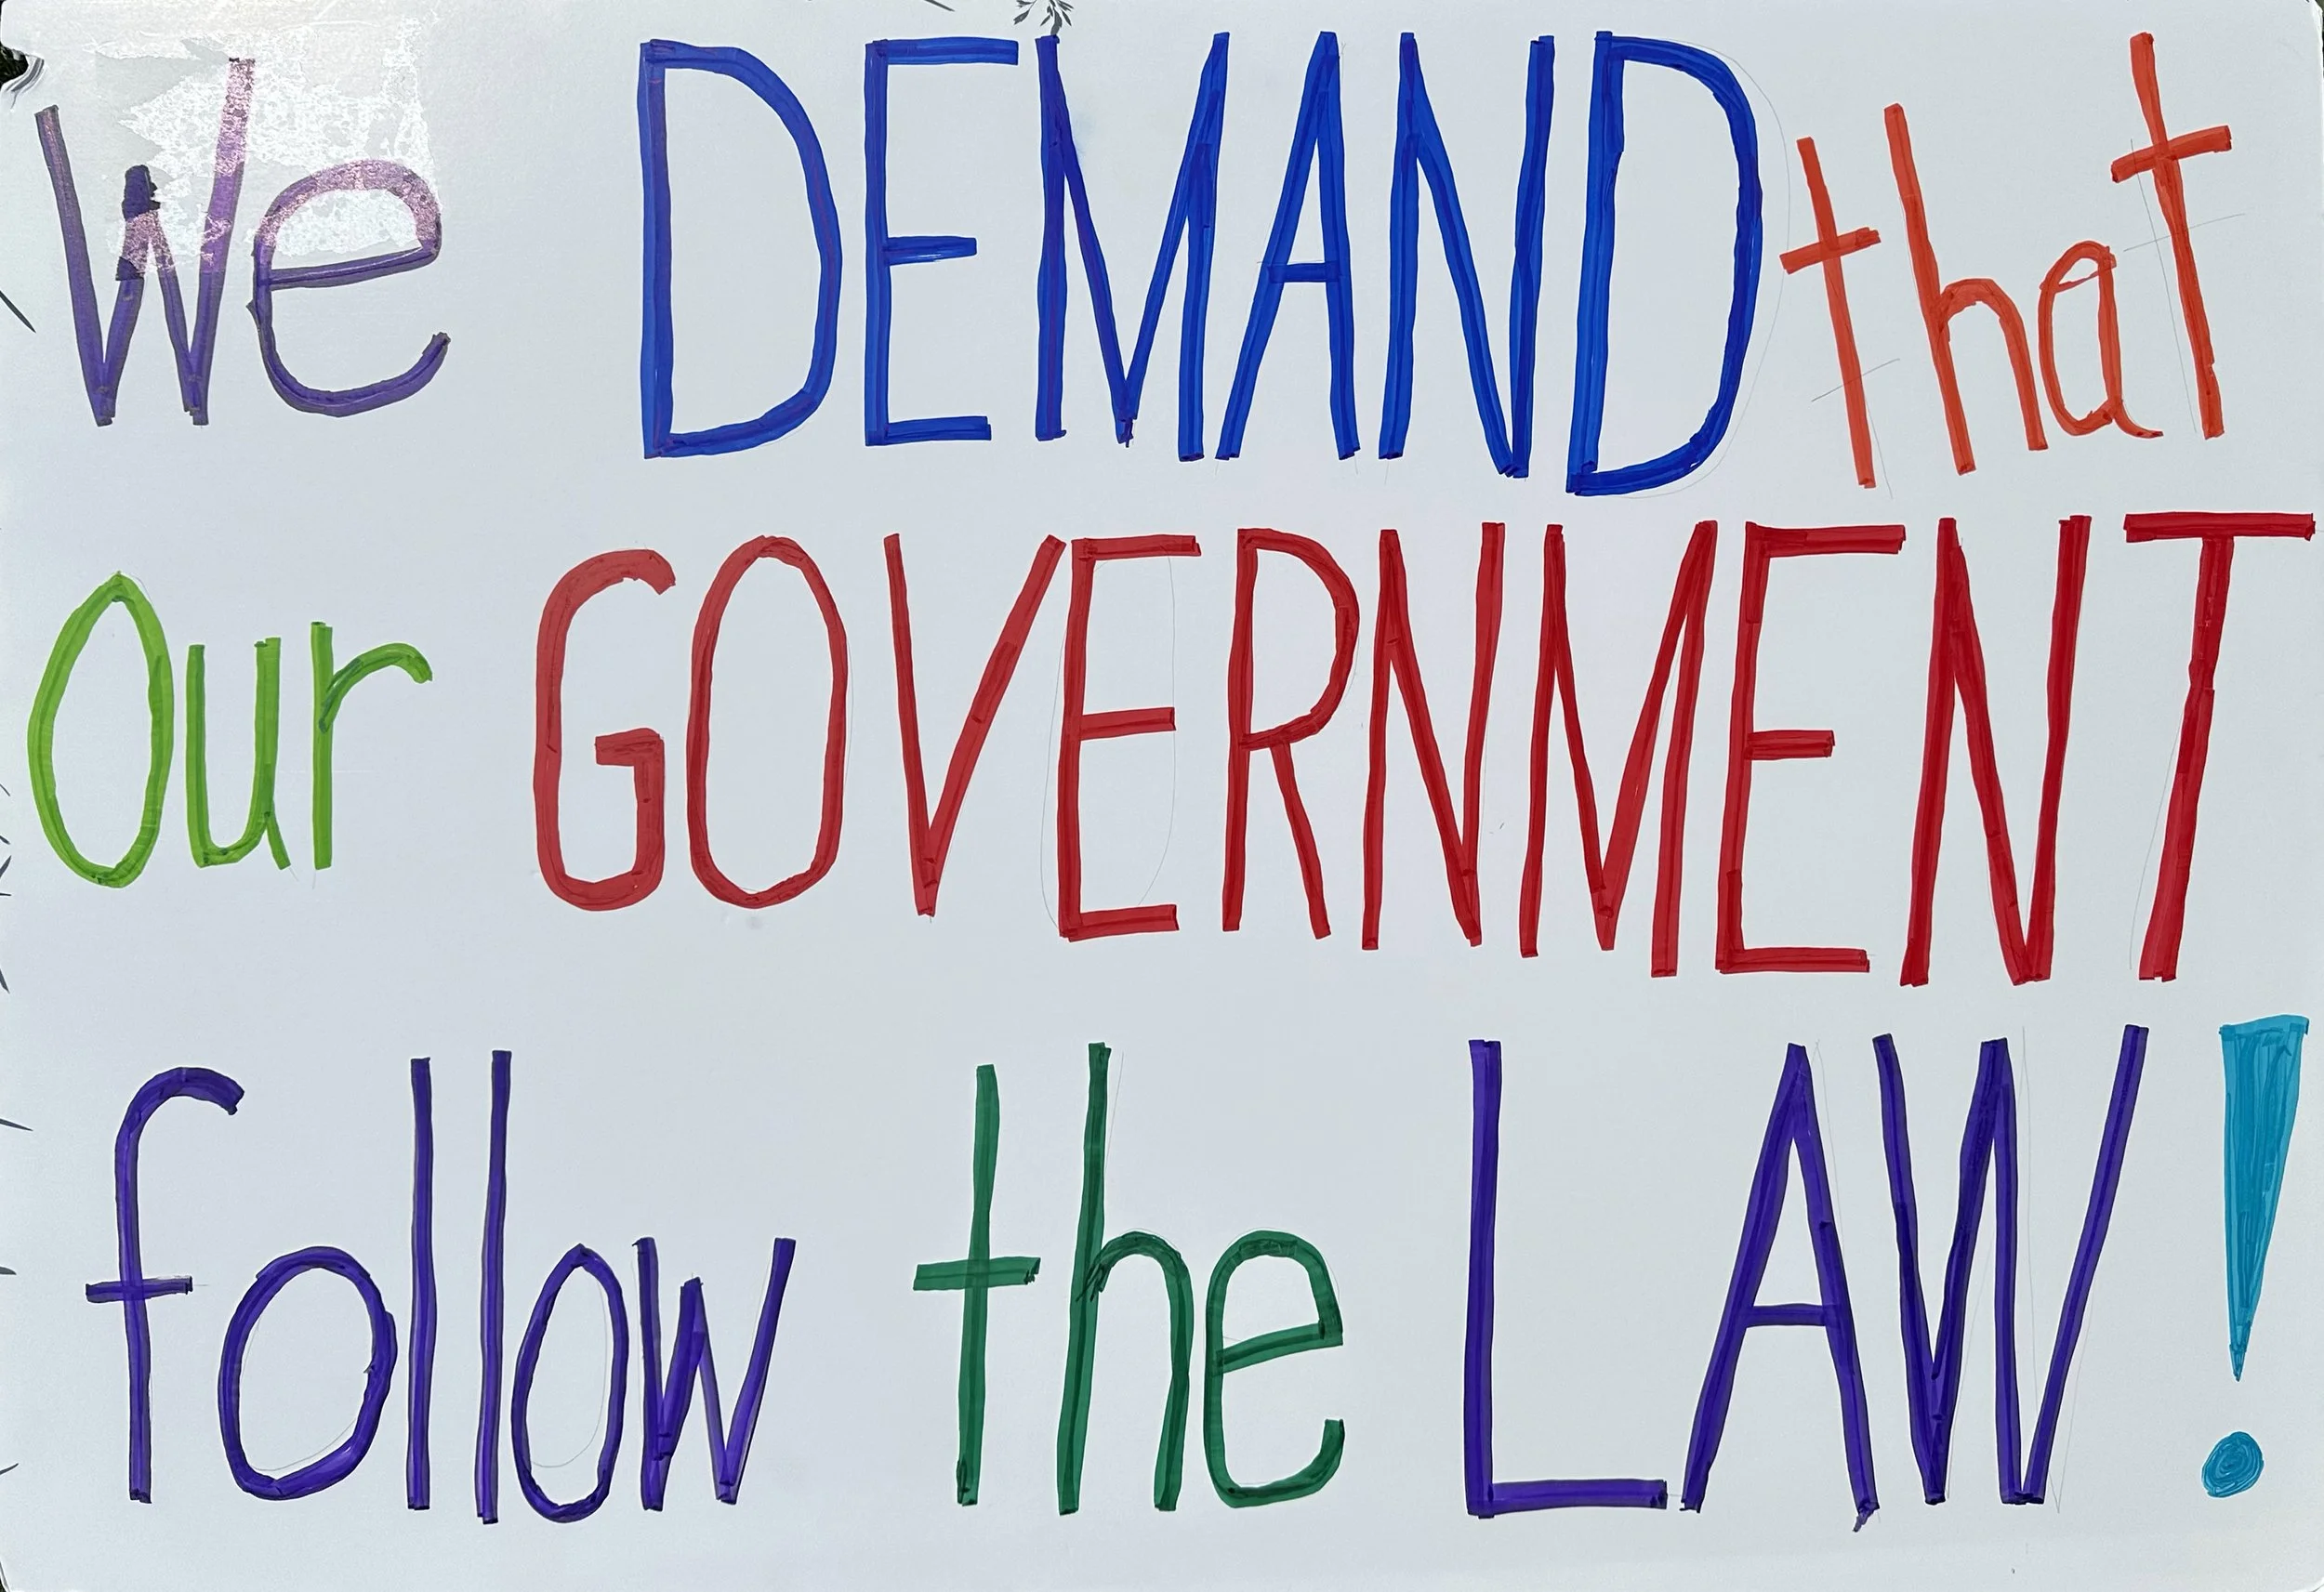 We DEMAND that
Our GOVERNMENT
follow the LAW!